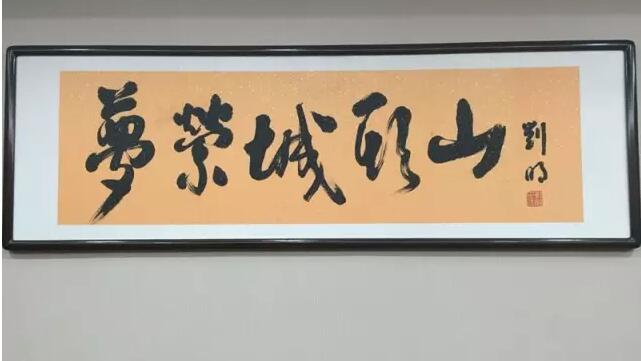 夢縈城頭山
劉明